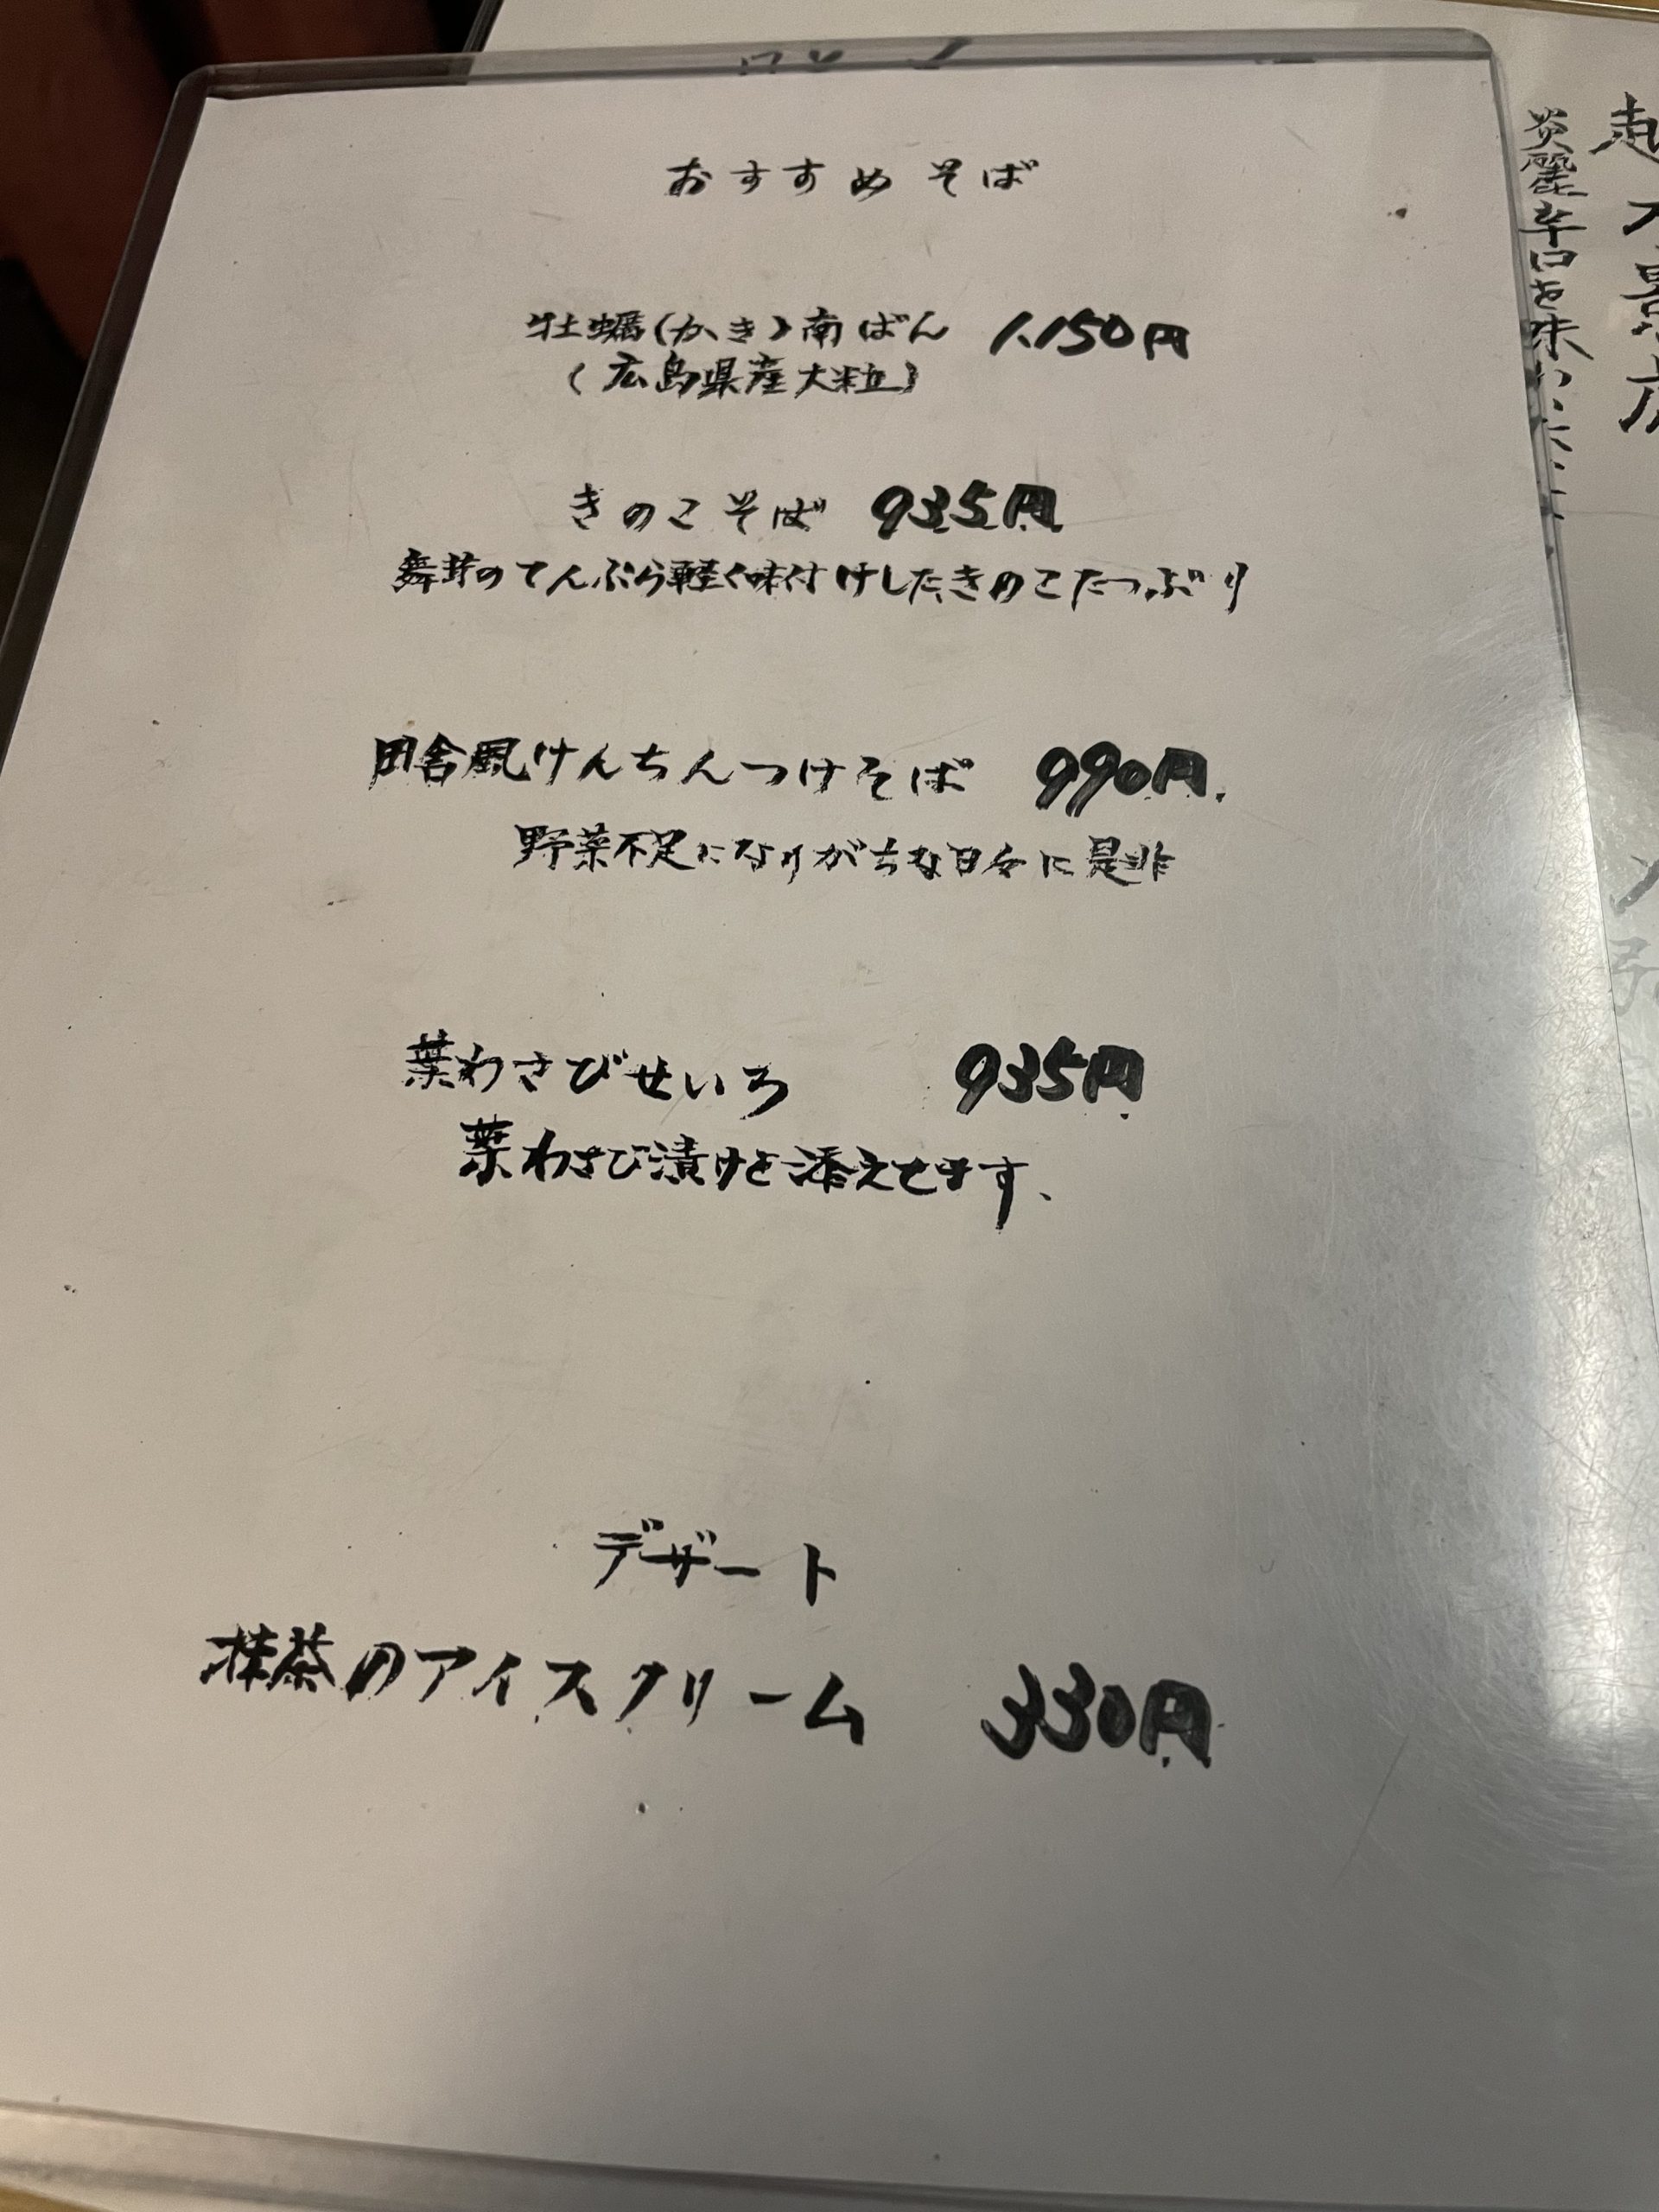 おすすめそば
牡蠣(かき)南ばん 1,150円
(広島県産大粒)
きのこそば 935円
舞茸のてんぷら軽く味付けしたきのこたっぷり
田舎風けんちんつけそば 990円
野菜不足になりがちな日々に是非
葉わさびせいろ 935円
葉わさび漬けを添えてます、
デザート
抹茶のアイスクリーム 330円
辛口を味わい